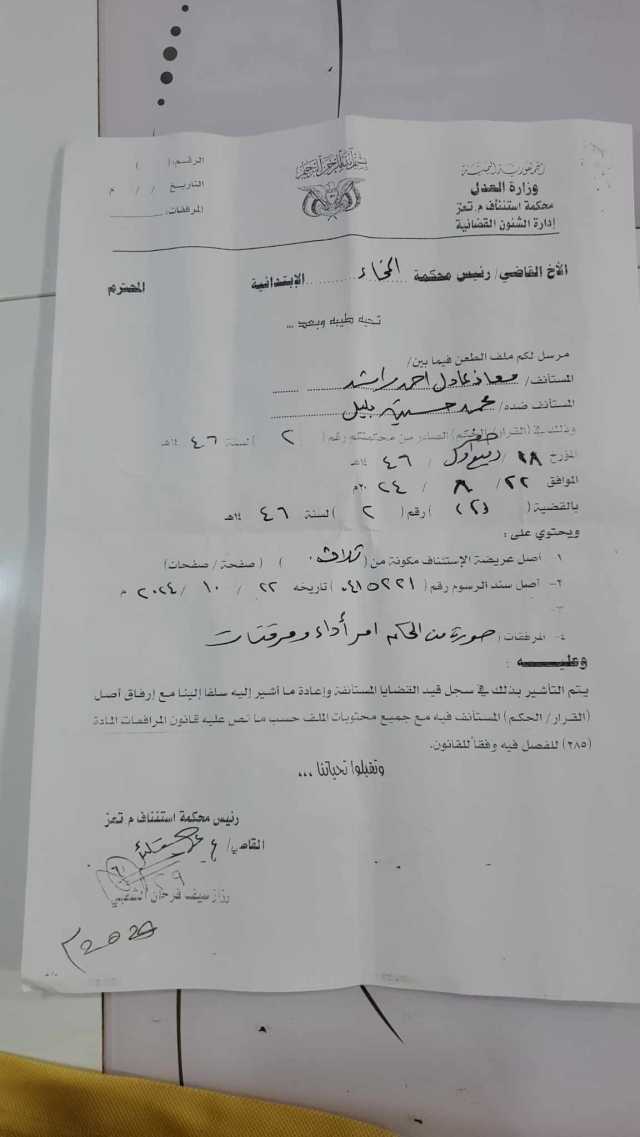 بسم الله الرحمن الرحيم
الجمهورية اليمنية
وزارة العدل
محكمة استئناف م تعز
إدارة الشئون القضائية
الرقم: ( )
التاريخ / / م
المرفقات:
الأخ القاضي/ رئيس محكمة المخاء الإبتدائية المحترم
تحية طيبه وبعد ...
مرسل لكم ملف الطعن فيما بين/
المستأنف/ معاذ عادل احمد راشد
المستأنف ضده/ محمد بليل
وذلك في (القرار/الحكم) الصادر من محكمتكم رقم ( ٢ ) لسنة ٤٦ ١٤هـ
المؤرخ ١٨ / / ٤٦ ١٤هـ
الموافق ٢٢ / ٨ / ٢٤ ٢٠م
بالقضية ( ) رقم ( ٢ ) لسنة ٤٦ ١٤هـ
ويحتوي على :
١- أصل عريضة الإستئناف مكونة من ( ثلاث ) ( صفحة / صفحات)
٢- أصل سند الرسوم رقم ( ٠٤١٥٢٢١ ) تاريخه ٢٢ / ١٠ / ٢٠٢٤ م
٣-
٤- المرفقات ( صورة من الحكم امر أداء ومرفقات
وعليــــه :
يتم التأشير بذلك في سجل قيد القضايا المستأنفة وإعادة ما أشير إليه سلفا إلينا مع إرفاق أصل
(القرار/ الحكم) المستأنف فيه مع جميع محتويات الملف حسب ما نص عليه قانون المرافعات المادة
(٢٨٥) للفصل فيه وفقاً للقانون.
وتقبلوا تحياتنا ...
رئيس محكمة استئناف م تعز
القاضي/
رزاز سيف فرحان الشعبي